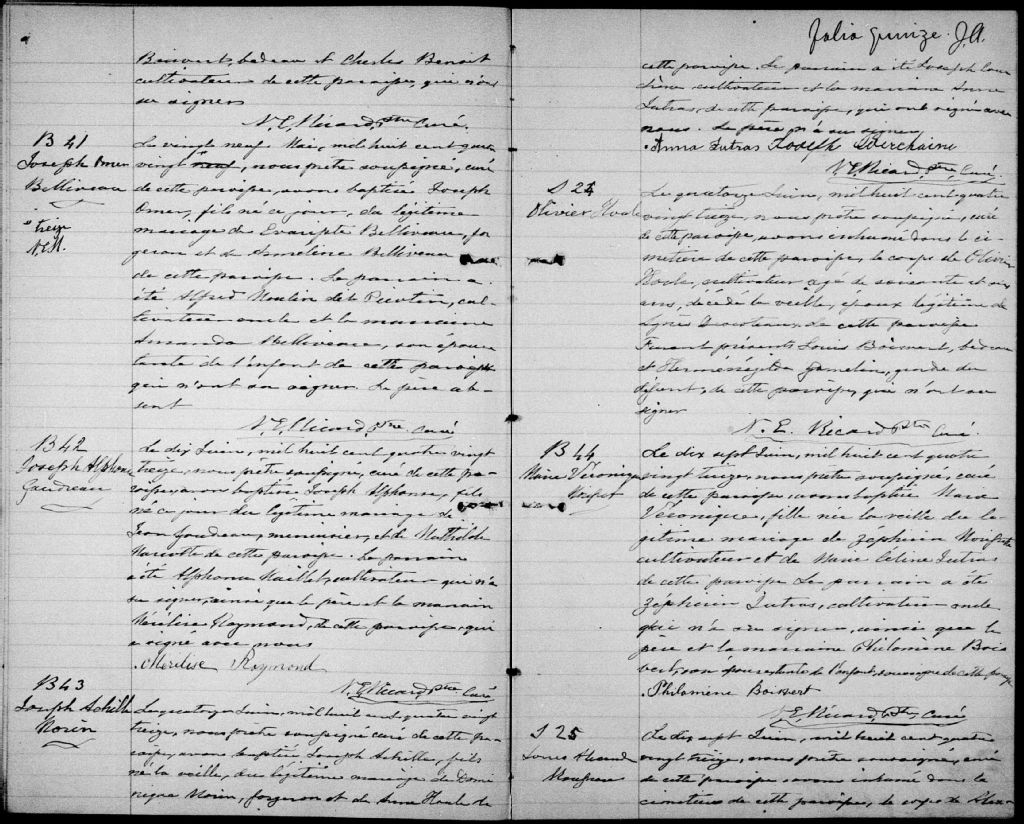 Boisvert, bedeau et Charles Benoit
cultivateur de cette paroisse, qui n'ont
su signer
N. E. Ricard, Ptre Curé.
B 41
Joseph Omer
Belliveau
treize
N.E.R.
Le vingt neuf Mai, mil huit cent quatre
vingt neuf, nous prêtre soussigné, curé
de cette paroisse, avons baptisé Joseph
Omer, fils né ce jour, du légitime
mariage de Evariste Belliveau, for
geron et de Amélina Belliveau
de cette paroisse. Le parrain a
été Alfred
et la marraine
Amanda Belliveau, son épouse
tante de l'enfant de cette paroisse
qui n'ont su signer. Le père ab-
sent
N. E. Ricard, Ptre Curé
B 42
Joseph Alphonse
Gaudreau
Le dix Juin, mil huit cent quatre vingt
treize, nous prêtre soussigné, curé de cette pa-
roisse, avons baptisé Joseph Alphonse, fils
né ce jour du légitime mariage de
Jean Gaudreau, menuisier, et de Mathilde
de cette paroisse. Le parrain
a été Alphonse cultivateur qui n'a
su signer, ainsi que le père et la marraine
Mérélise Raymond, de cette paroisse, qui
a signé avec nous
Merelise Raymond
N. E. Ricard, Ptre Curé
B 43
Joseph Achille
Morin
Le quatorze Juin, mil huit cent quatre vingt
treize, nous prêtre soussigné curé de cette pa-
roisse, avons baptisé Joseph Achille, fils
né la veille, du légitime mariage de Domi
nique Morin, forgeron et de Anne Houle de
Folio quinze. J.A.
cette paroisse. Le parrain a été Joseph Cour
chêne, cultivateur et la marraine Anna
Jutras, de cette paroisse, qui ont signé avec
nous. Le père n'a su signer
Anna Jutras Joseph Courchaine
N. E. Ricard, Ptre, Curé.
S 24
Olivier Houle
Le quatorze Juin, mil huit cent quatre
vingt treize, nous prêtre soussigné, curé
de cette paroisse, avons inhumé dans le ci-
metière de cette paroisse, le corps de Olivier
Houle, cultivateur agé de soixante et six
ans, décédé la veille, époux légitime de
Agnès de cette paroisse
Furent présents Louis Boisvert, bedeau
et Herménégilde Gamelin, gendre du
défunt, de cette paroisse, qui n'ont su
signer
N. E. Ricard Ptre Curé.
B 44
Marie Véronique
Le dix sept Juin, mil huit cent quatre
vingt treize, nous prêtre soussigné, curé
de cette paroisse, avons baptisé Marie
Véronique, fille née la veille du lé-
gitime mariage de Zéphirin
cultivateur et de Marie Céline Jutras
de cette paroisse Le parrain a été
Zéphirin Jutras, cultivateur oncle
qui n'a su signer, ainsi que le
père et la marraine Philomène Bois
vert, son épouse tante de l'enfant, de cette paroisse
Philomène Boisvert
N. E. Ricard, Ptre, Curé
S 25
Le dix sept Juin, mil huit cent quatre
vingt treize, nous prêtre soussigné, curé
de cette paroisse, avons inhumé dans le
cimetière de cette paroisse, le corps de Alex-